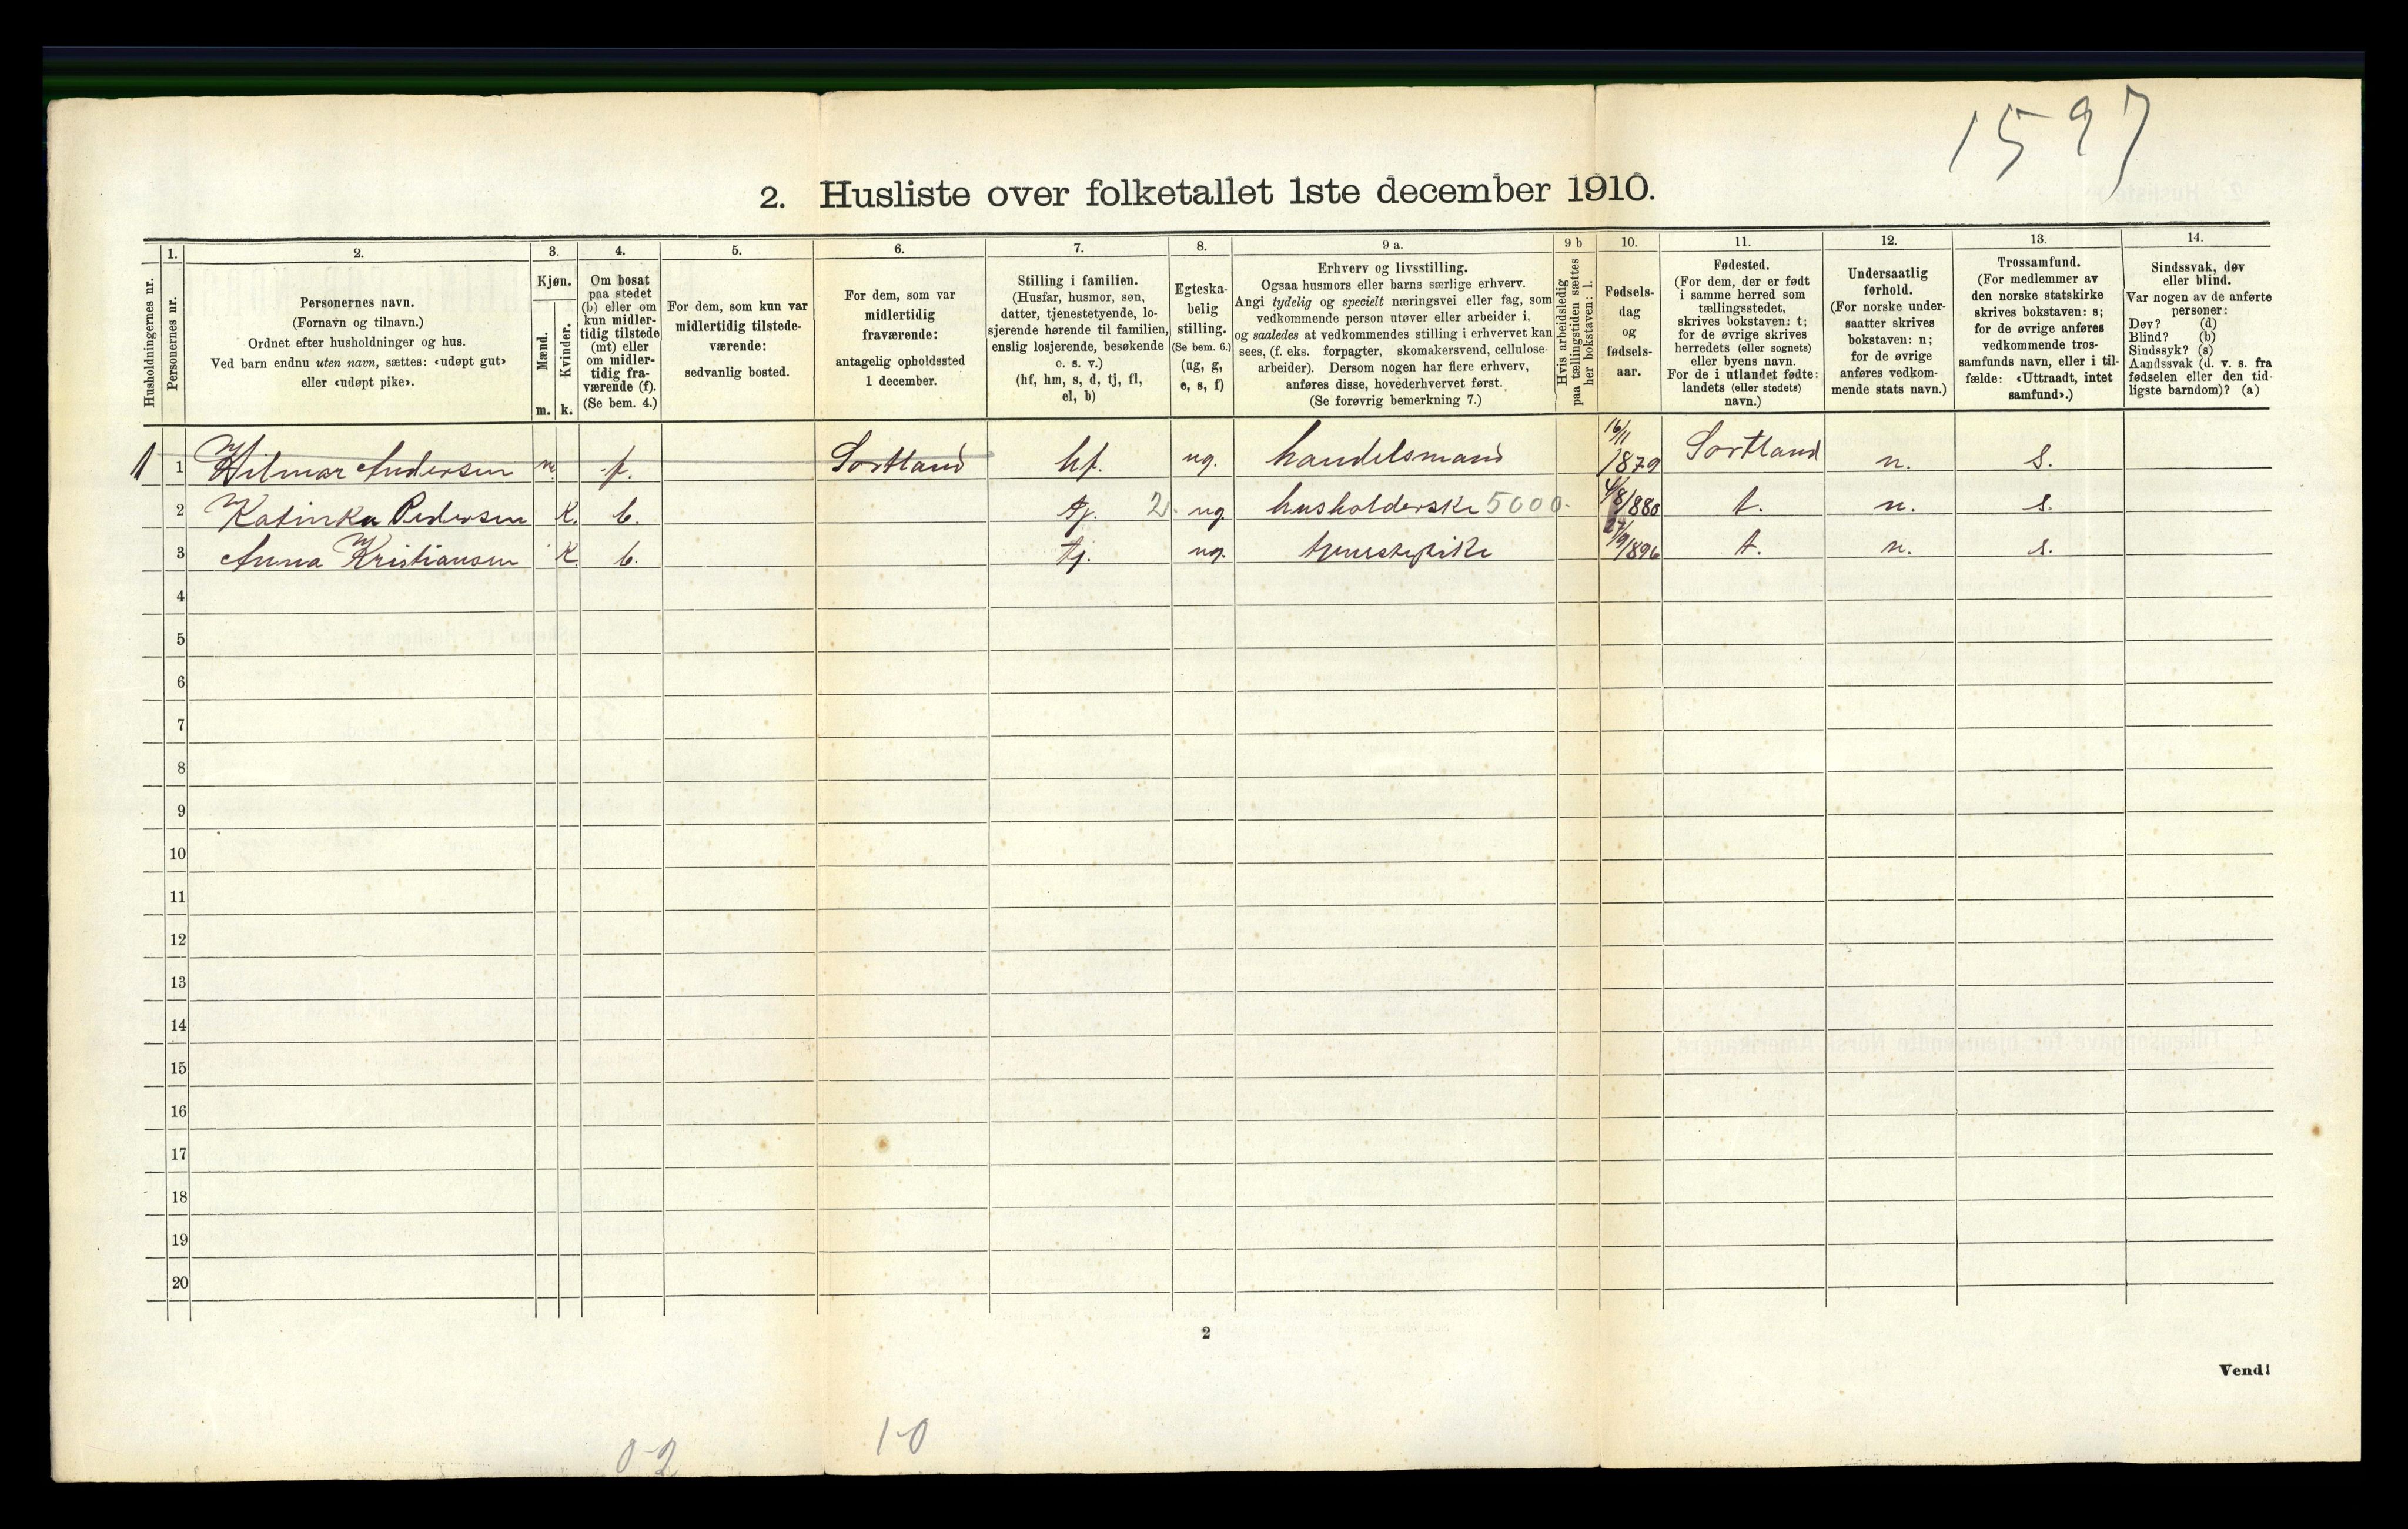 1597
2. Husliste over folketallet 1ste december 1910.
Husholdningernes nr.
1.
Personernes nr.
2.
Personernes navn.
(Fornavn og tilnavn.)
Ordnet efter husholdninger og hus.
Ved barn endnu uten navn, sættes: «udøpt gut»
eller «udøpt pike».
3.
Kjøn.
Mænd.
Kvinder.
m. k.
4.
Om bosat
paa stedet
(b) eller om
kun midler-
tidig tilstede
(mt) eller
om midler-
tidig fra-
værende (f).
(Se bem. 4.)
5.
For dem, som kun var
midlertidig tilstede-
værende:
sedvanlig bosted.
6.
For dem, som var
midlertidig
fraværende:
antagelig opholdssted
1 december.
7.
Stilling i familien.
(Husfar, husmor, søn,
datter, tjenestetyende, lo-
sjerende hørende til familien,
enslig losjerende, besøkende
o. s. v.)
(hf, hm, s, d, tj, fl,
el, b)
8.
Egteska-
belig
stilling.
(Se bem. 6.)
(ug, g,
e, s, f)
9 a.
Erhverv og livsstilling.
Ogsaa husmors eller barns særlige erhverv.
Angi tydelig og specielt næringsvei eller fag, som
vedkommende person utøver eller arbeider i,
og saaledes at vedkommendes stilling i erhvervet kan
sees, (f. eks. forpagter, skomakersvend, cellulose-
arbeider). Dersom nogen har flere erhverv,
anføres disse, hovederhvervet først.
(Se forøvrig bemerkning 7.)
9 b
Hvis arbeidsledig
paa tællingstiden sættes
her bokstaven: l.
10.
Fødsels-
dag
og
fødsels-
aar.
11.
Fødested.
(For dem, der er født
i samme herred som
tællingsstedet,
skrives bokstaven: t;
for de øvrige skrives
herredets (eller sognets)
eller byens navn.
For de i utlandet fødte:
landets (eller stedets)
navn.)
12.
Undersaatlig
forhold.
(For norske under-
saatter skrives
bokstaven: n;
for de øvrige
anføres vedkom-
mende stats navn.)
13.
Trossamfund.
(For medlemmer av
den norske statskirke
skrives bokstaven: s;
for de øvrige anføres
vedkommende tros-
samfunds navn, eller i til-
fælde: «Uttraadt, intet
samfund».)
14.
Sindssvak, døv
eller blind.
Var nogen av de anførte
personer:
Døv? (d)
Blind? (b)
Sindssyk? (s)
Aandssvak (d. v. s. fra
fødselen eller den tid-
ligste barndom)? (a)
1 1 Hilmar Andersen m. f. Sortland hf. ug. handelsmand 16/11 1879 Sortland n. s.
2 Katinka Pedersen K. b. tj. 2 ug. husholderske 5000 4/8 1880 t. n. s.
3 Anna Kristiansen K b. tj. ug. tjenestepike 1896 t. n. s.
4
5
6
7
8
9
10
11
12
13
14
15
16
17
18
19
20
2
Vend!
0-2
1-0